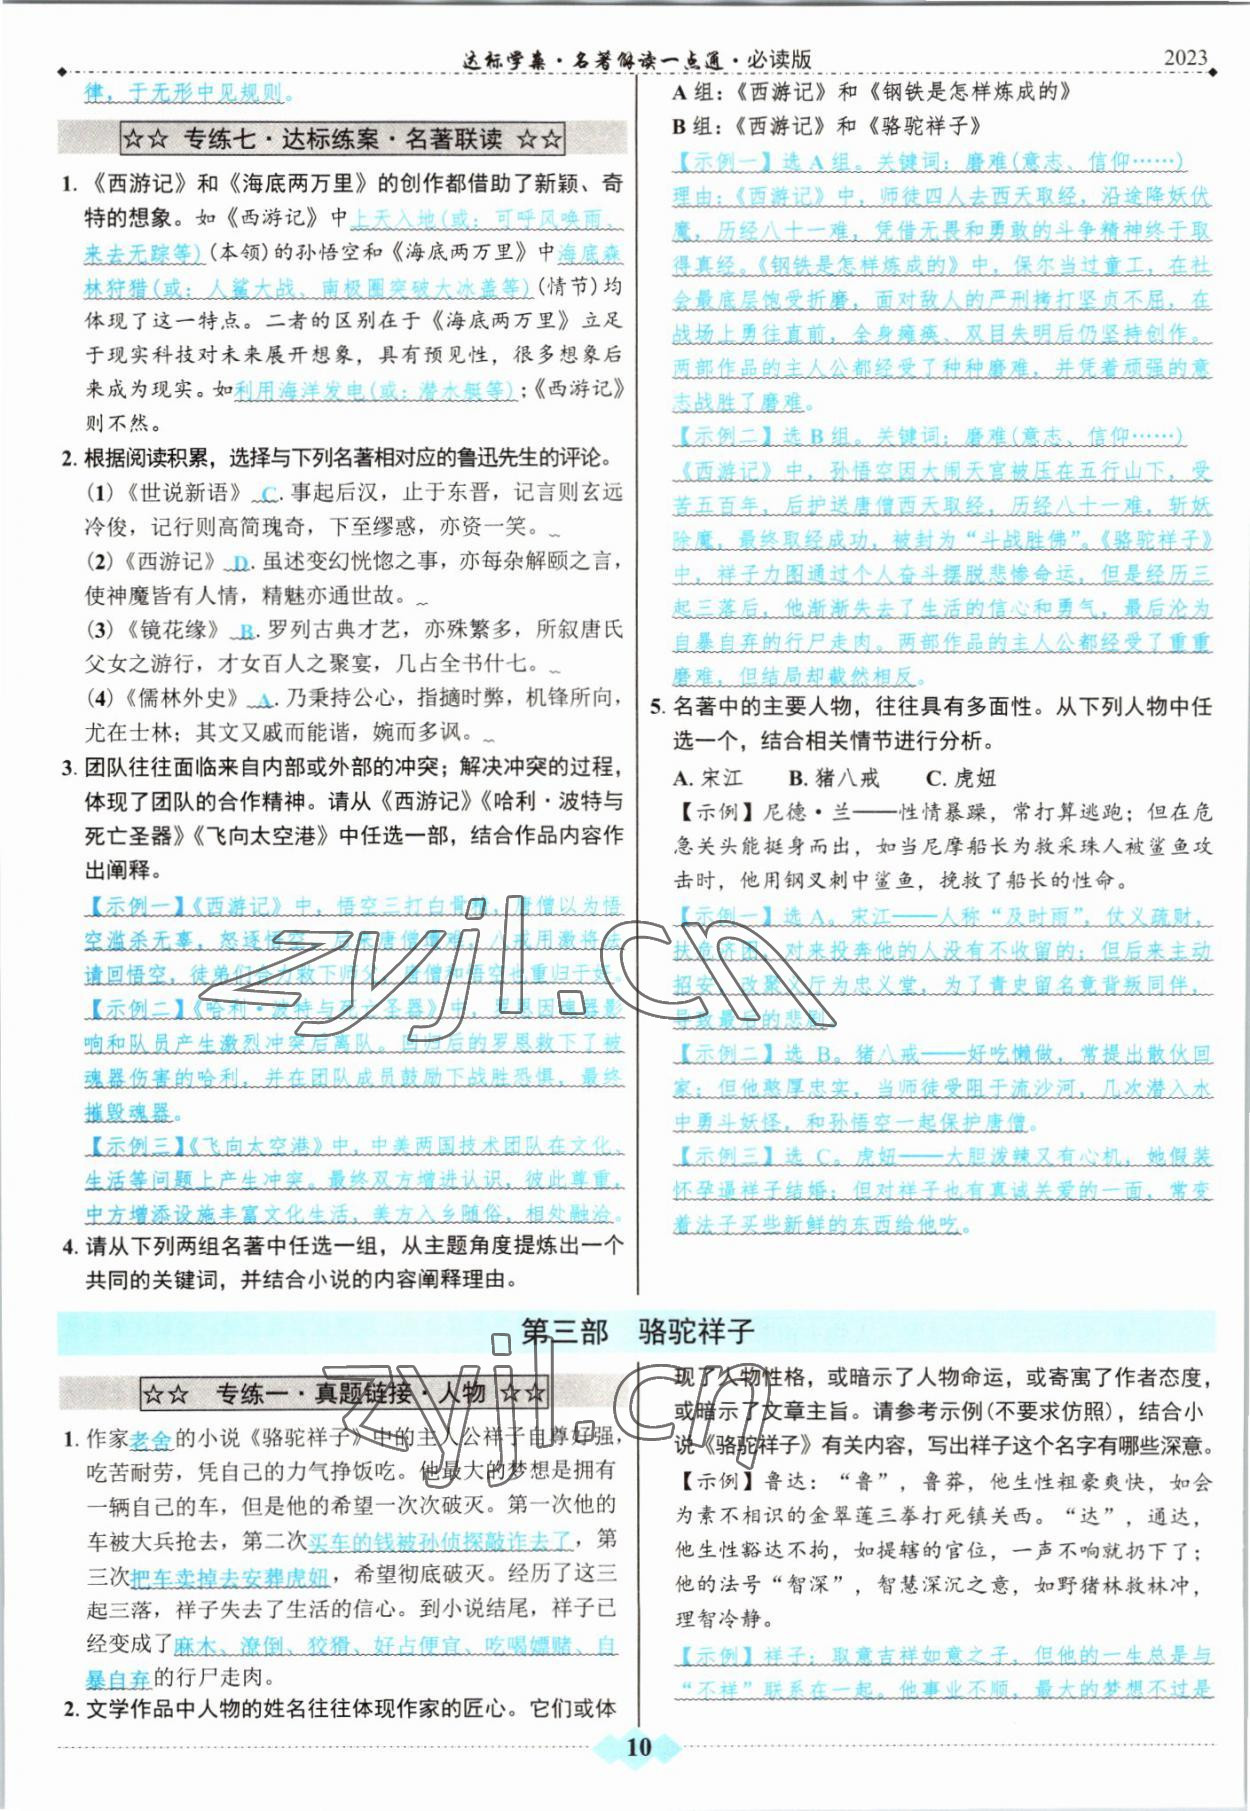 达标学案·名著解读一点通·必读版
2023
律，于无形中见规则。
☆☆ 专练七·达标练案·名著联读 ☆☆
1. 《西游记》和《海底两万里》的创作都借助了新颖、奇
特的想象。如《西游记》中上天入地(或：可呼风唤雨、
来去无踪等)(本领)的孙悟空和《海底两万里》中海底森
林狩猎(或：人鲨大战、南极圈突破大冰盖等)(情节)均
体现了这一特点。二者的区别在于《海底两万里》立足
于现实科技对未来展开想象，具有预见性，很多想象后
来成为现实。如利用海洋发电(或：潜水艇等)；《西游记》
则不然。
2. 根据阅读积累，选择与下列名著相对应的鲁迅先生的评论。
(1)《世说新语》 C. 事起后汉，止于东晋，记言则玄远
冷俊，记行则高简瑰奇，下至缪惑，亦资一笑。
(2)《西游记》 D. 虽述变幻恍惚之事，亦每杂解颐之言，
使神魔皆有人情，精魅亦通世故。
(3)《镜花缘》 B. 罗列古典才艺，亦殊繁多，所叙唐氏
父女之游行，才女百人之聚宴，几占全书什七。
(4)《儒林外史》 A. 乃秉持公心，指擿时弊，机锋所向，
尤在士林；其文又戚而能谐，婉而多讽。
3. 团队往往面临来自内部或外部的冲突；解决冲突的过程，
体现了团队的合作精神。请从《西游记》《哈利·波特与
死亡圣器》《飞向太空港》中任选一部，结合作品内容作
出阐释。
【示例一】《西游记》中，悟空三打白骨精，唐僧以为悟
空滥杀无辜，怒逐悟空。后来唐僧遭难，八戒用激将法
请回悟空，徒弟们合力救下师父，唐僧和悟空也重归于好。
【示例二】《哈利·波特与死亡圣器》中，罗恩因魂器影
响和队员产生激烈冲突后离队。回归后的罗恩救下了被
魂器伤害的哈利，并在团队成员鼓励下战胜恐惧，最终
摧毁魂器。
【示例三】《飞向太空港》中，中美两国技术团队在文化、
生活等问题上产生冲突。最终双方增进认识，彼此尊重，
中方增添设施丰富文化生活，美方入乡随俗，相处融洽。
4. 请从下列两组名著中任选一组，从主题角度提炼出一个
共同的关键词，并结合小说的内容阐释理由。
A 组：《西游记》和《钢铁是怎样炼成的》
B 组：《西游记》和《骆驼祥子》
【示例一】选 A 组。关键词：磨难(意志、信仰……)
理由：《西游记》中，师徒四人去西天取经，沿途降妖伏
魔，历经八十一难，凭借无畏和勇敢的斗争精神终于取
得真经。《钢铁是怎样炼成的》中，保尔当过童工，在社
会最底层饱受折磨，面对敌人的严刑拷打坚贞不屈，在
战场上勇往直前，全身瘫痪、双目失明后仍坚持创作。
两部作品的主人公都经受了种种磨难，并凭着顽强的意
志战胜了磨难。
【示例二】选 B 组。关键词：磨难(意志、信仰……)
《西游记》中，孙悟空因大闹天宫被压在五行山下，受
苦五百年，后护送唐僧西天取经，历经八十一难，斩妖
除魔，最终取经成功，被封为“斗战胜佛”。《骆驼祥子》
中，祥子力图通过个人奋斗摆脱悲惨命运，但是经历三
起三落后，他渐渐失去了生活的信心和勇气，最后沦为
自暴自弃的行尸走肉。两部作品的主人公都经受了重重
磨难，但结局却截然相反。
5. 名著中的主要人物，往往具有多面性。从下列人物中任
选一个，结合相关情节进行分析。
A. 宋江 B. 猪八戒 C. 虎妞
【示例】尼德·兰——性情暴躁，常打算逃跑；但在危
急关头能挺身而出，如当尼摩船长为救采珠人被鲨鱼攻
击时，他用钢叉刺中鲨鱼，挽救了船长的性命。
【示例一】选 A。宋江——人称“及时雨”，仗义疏财，
扶危济困，对来投奔他的人没有不收留的；但后来接受
招安，改聚义厅为忠义堂，为了青史留名竟背叛同伴，
导致最后的悲剧。
【示例二】选 B。猪八戒——好吃懒做，常提出散伙回
家；但他憨厚忠实，当师徒受阻于流沙河，几次潜入水
中勇斗妖怪，和孙悟空一起保护唐僧。
【示例三】选 C。虎妞——大胆泼辣又有心机，她假装
怀孕逼祥子结婚；但对祥子也有真诚关爱的一面，常变
着法子买些新鲜的东西给他吃。
第三部 骆驼祥子
☆☆ 专练一·真题链接·人物 ☆☆
1. 作家老舍的小说《骆驼祥子》中的主人公祥子自尊好强，
吃苦耐劳，凭自己的力气挣饭吃。他最大的梦想是拥有
一辆自己的车，但是他的希望一次次破灭。第一次他的
车被大兵抢去，第二次买车的钱被孙侦探敲诈去了，第
三次把车卖掉去安葬虎妞，希望彻底破灭。经历了这三
起三落，祥子失去了生活的信心。到小说结尾，祥子已
经变成了麻木、潦倒、狡猾、好占便宜、吃喝嫖赌、自
暴自弃的行尸走肉。
2. 文学作品中人物的姓名往往体现作家的匠心。它们或体
现了人物性格，或暗示了人物命运，或寄寓了作者态度，
或暗示了文章主旨。请参考示例(不要求仿照)，结合小
说《骆驼祥子》有关内容，写出祥子这个名字有哪些深意。
【示例】鲁达：“鲁”，鲁莽，他生性粗豪爽快，如会
为素不相识的金翠莲三拳打死镇关西。“达”，通达，
他生性豁达不拘，如提辖的官位，一声不响就扔下了；
他的法号“智深”，智慧深沉之意，如野猪林救林冲，
理智冷静。
【示例】祥子：取意吉祥如意之子，但他的一生总是与
“不祥”联系在一起。他事业不顺，最大的梦想不过是
10
zyjl.cn
zyjl.cn